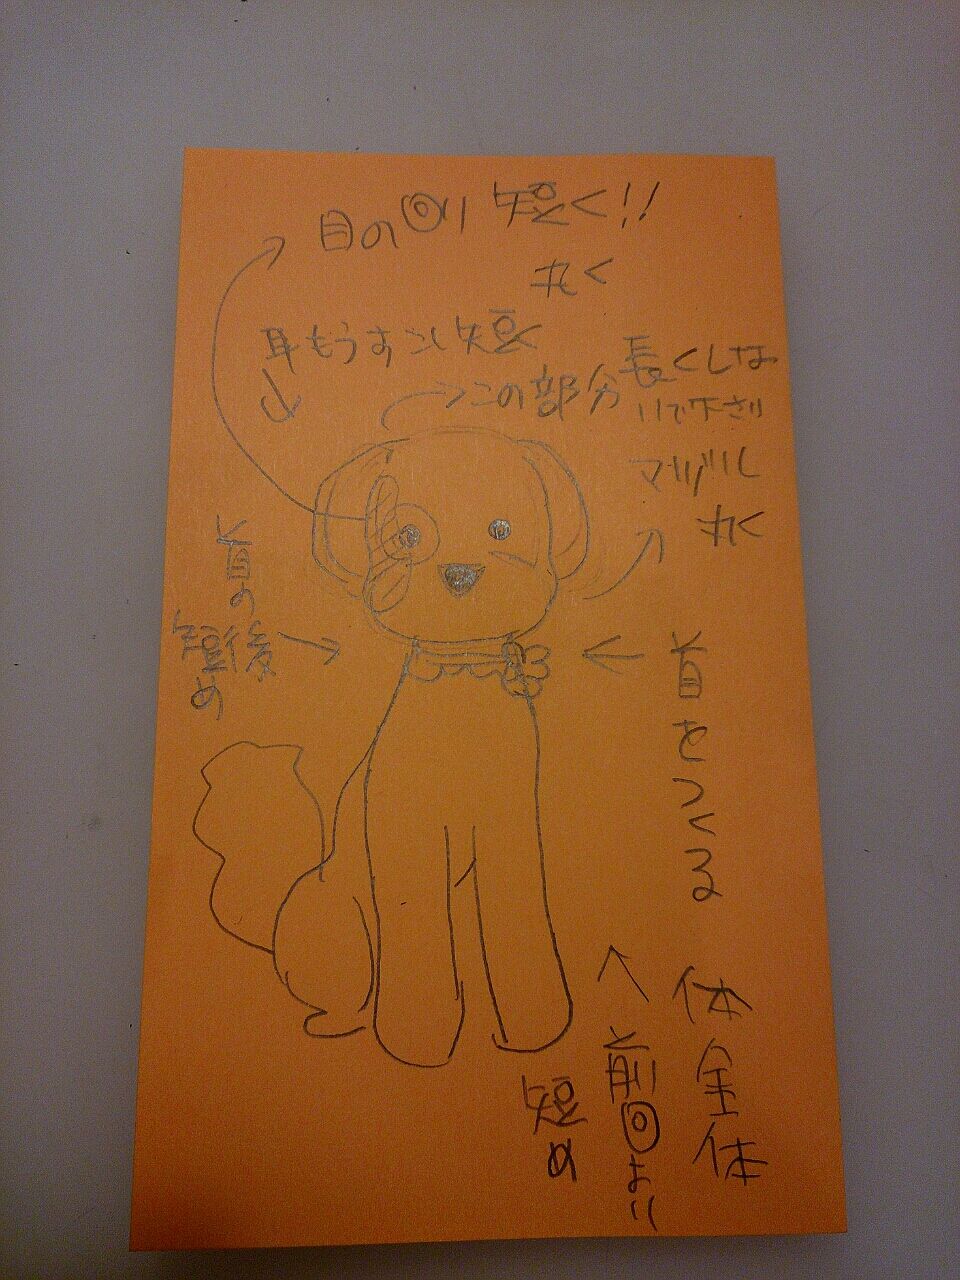 目の回り短く!!
丸く
耳もうすこし短く
この部分長くしな
いで下さい
マズル
丸く
首の
後
短め
首をつくる
体全体
前回より
短め